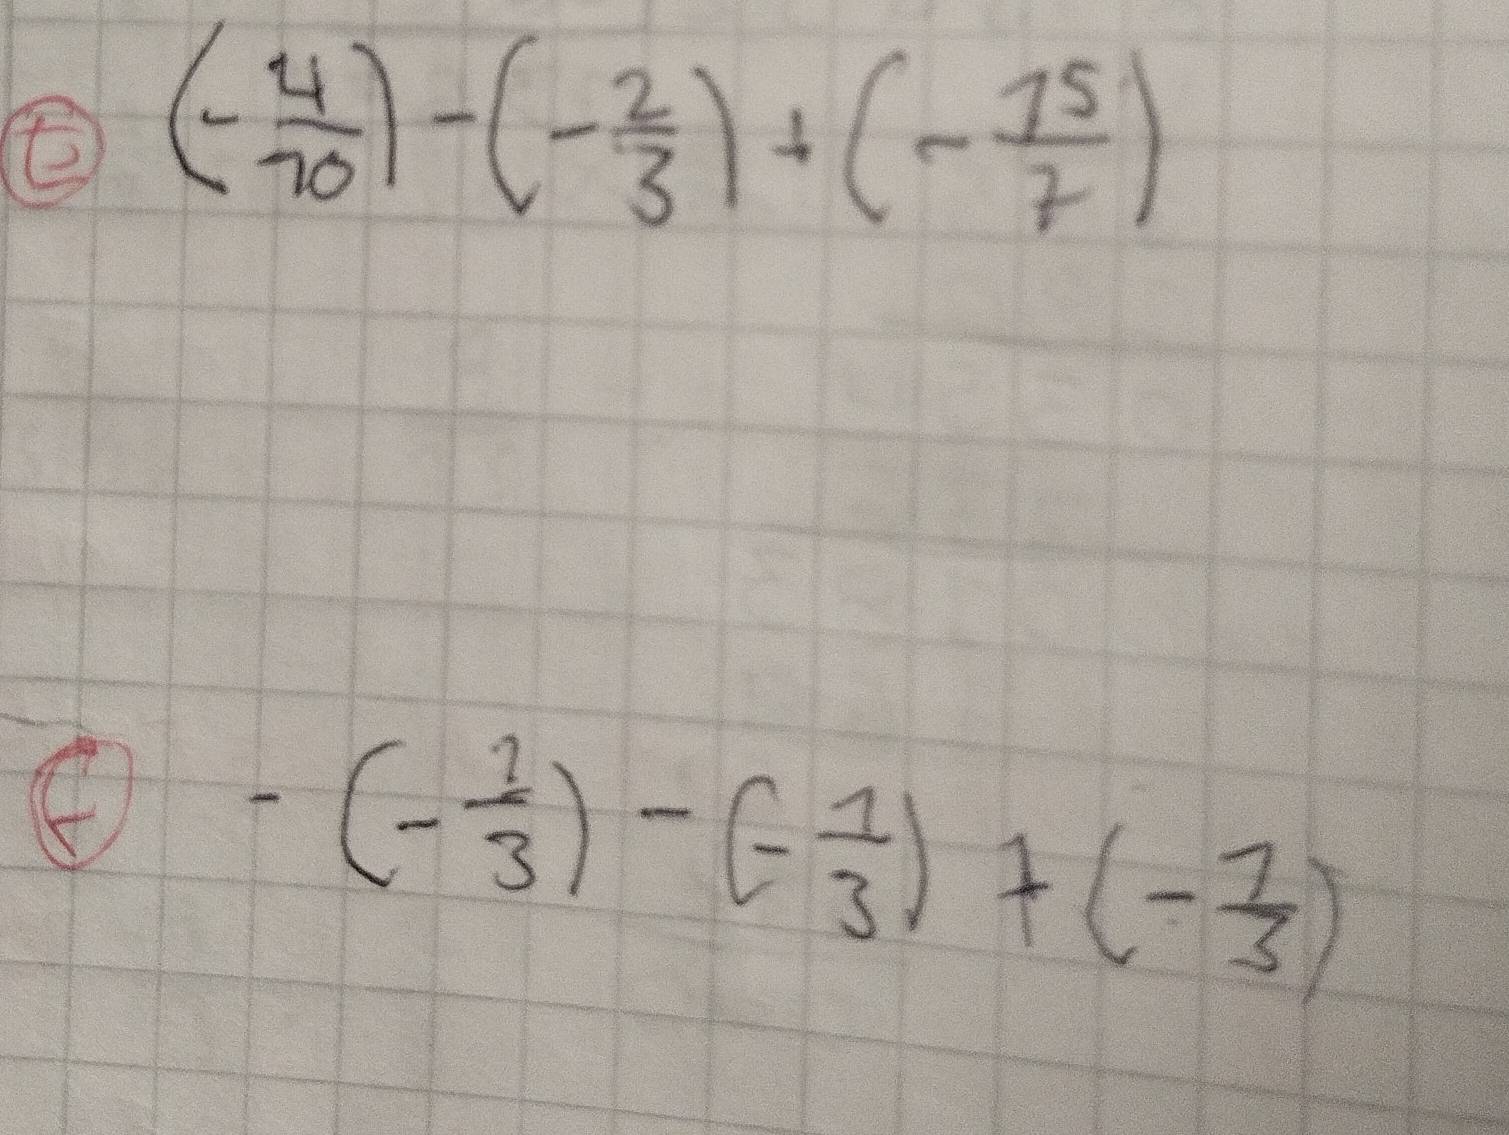 E (-4/10) - (-2/3) + (-15/7)
F - (-1/3) - (-1/3) + (-1/3)